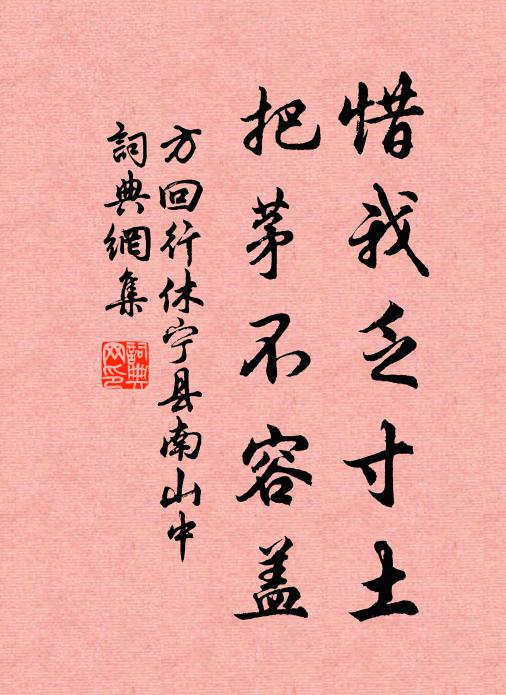 惜我乏寸土
把茅不容盖
方回行休宁县南山中
詞典網集
詞典網印